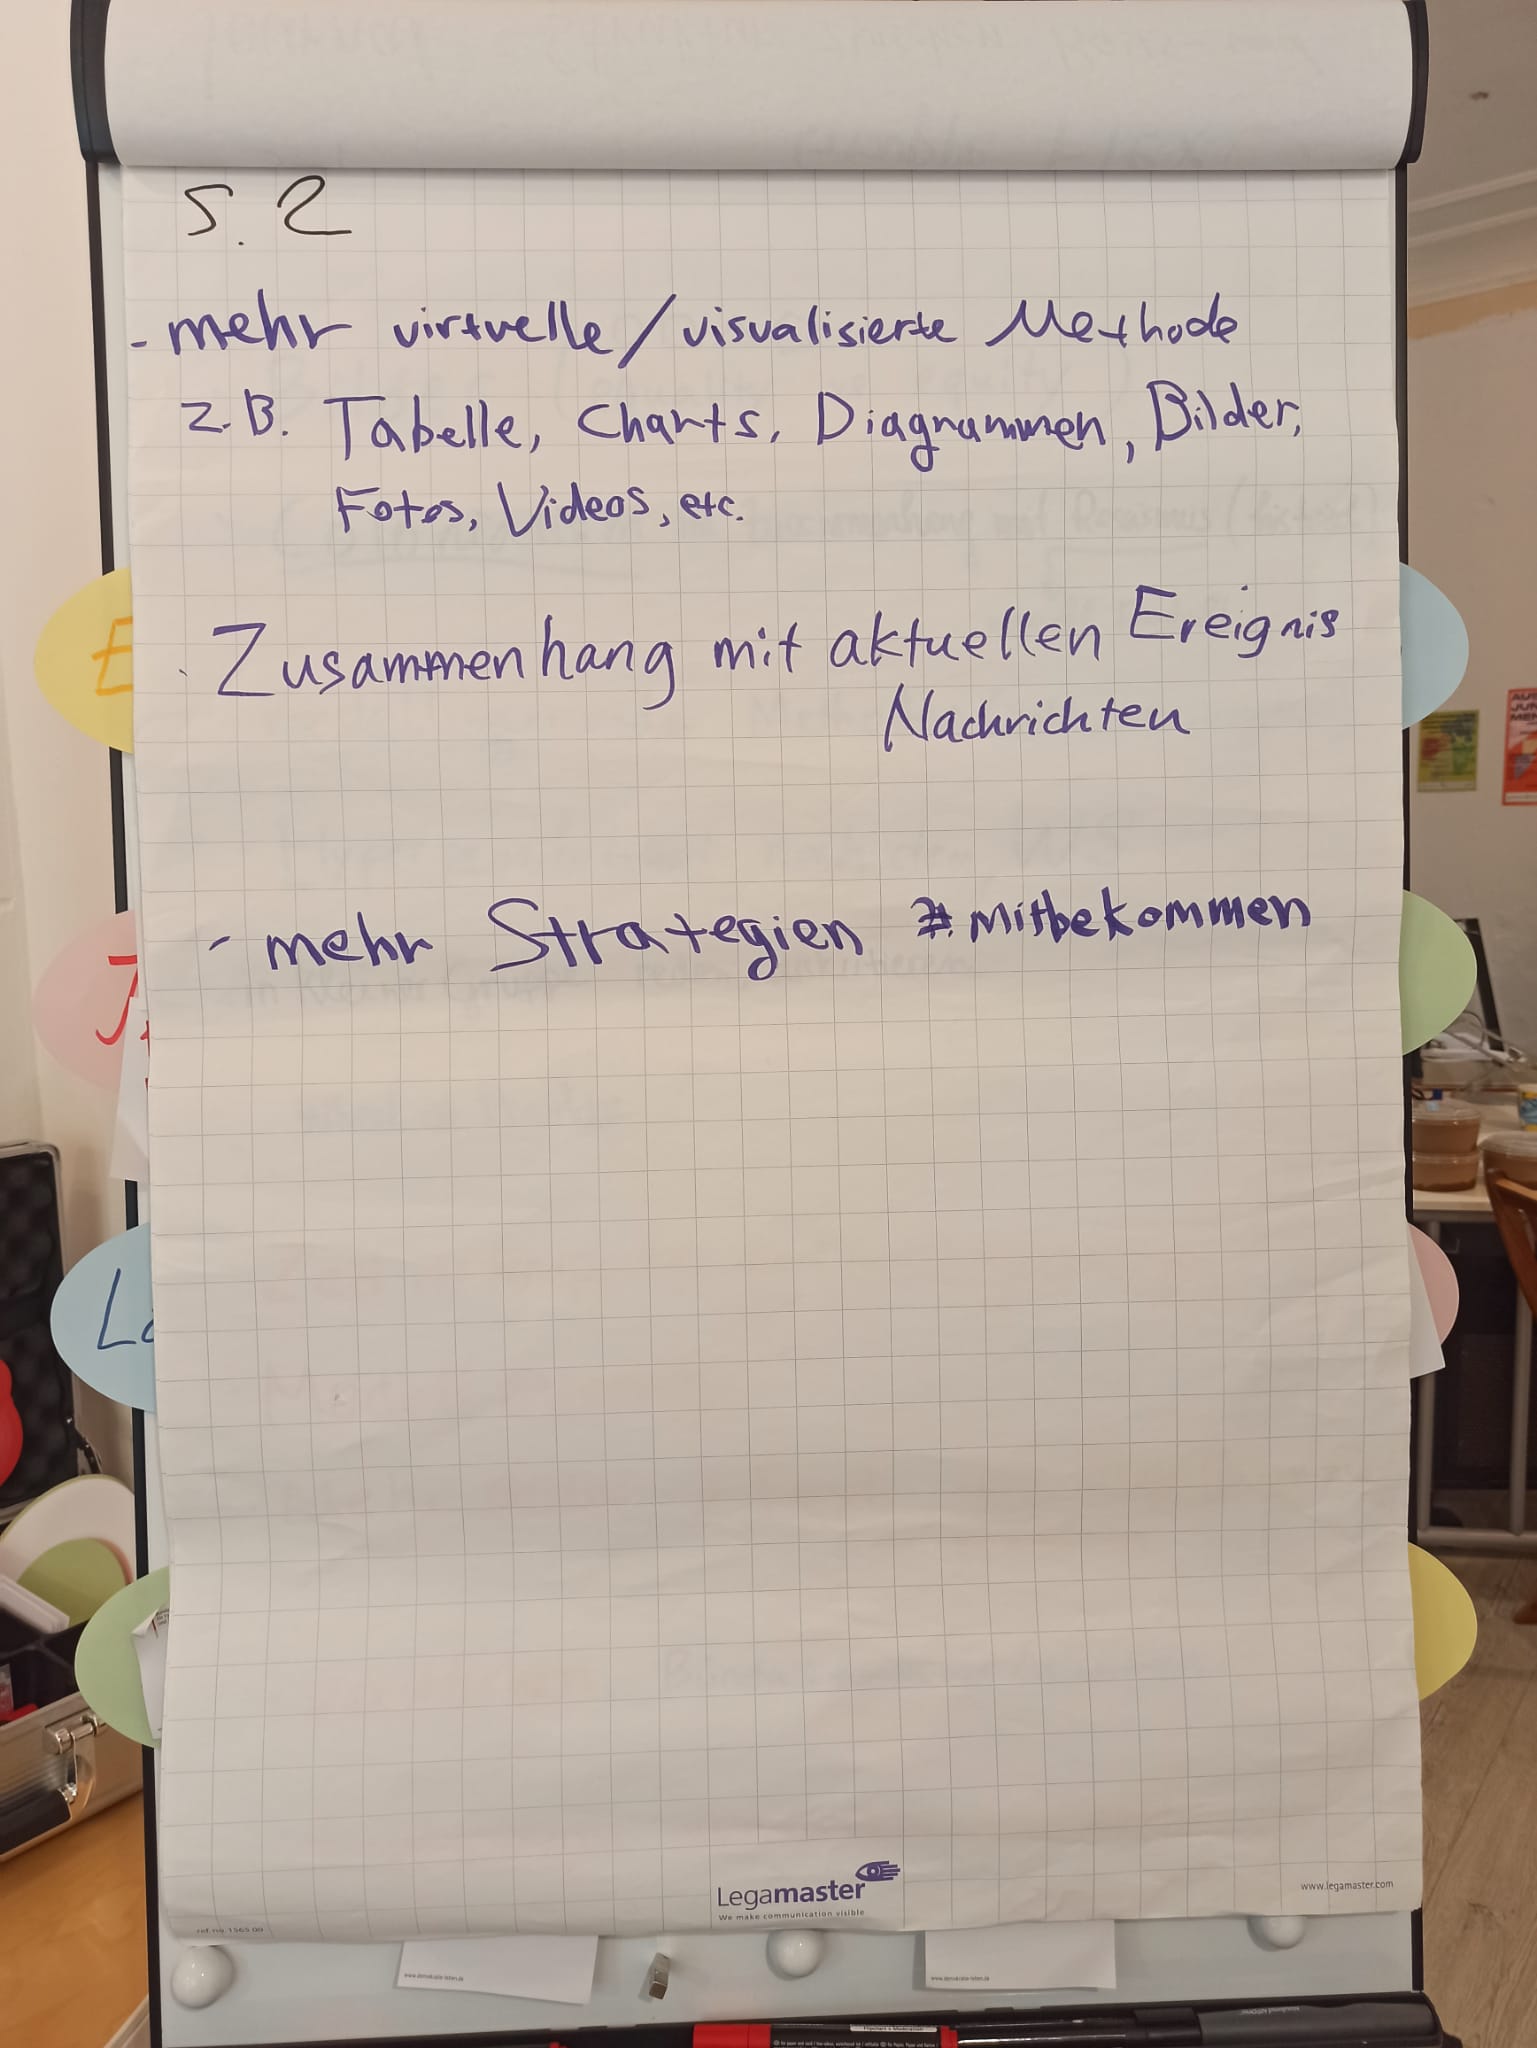 S. 2
- mehr virtuelle/visualisierte Methode
z.B. Tabelle, Charts, Diagrammen, Bilder,
Fotos, Videos, etc.
- Zusammenhang mit aktuellen Ereignis
Nachrichten
- mehr Strategien mitbekommen
Legamaster
We make communication visible
www.legamaster.com
www.demokratie-leben.de
www.demokratie-leben.de